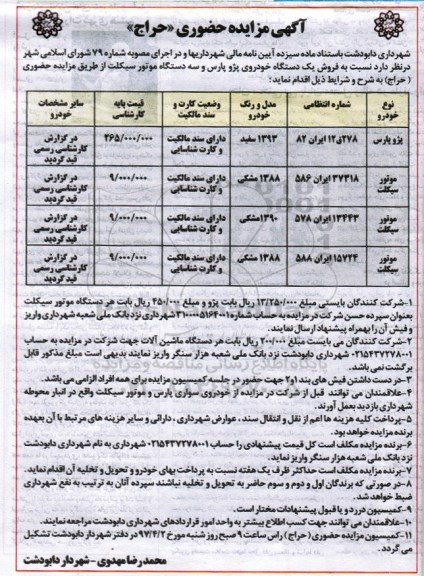 آگهی مزایده حضوری «حراج»
شهرداری دابودشت باستناد ماده سیزده آیین نامه مالی شهرداریها و در اجرای مصوبه شماره ۷۹ شورای اسلامی شهر
درنظر دارد نسبت به فروش یک دستگاه خودروی پژو پارس و سه دستگاه موتور سیکلت از طریق مزایده حضوری
( حراج) به شرح و شرایط ذیل اقدام نماید:
نوع خودرو | شماره انتظامی | مدل و رنگ خودرو | وضعیت کارت و سند مالکیت | قیمت پایه کارشناسی | سایر مشخصات خودرو
پژو پارس | ۲۷۸ق۱۲ ایران ۸۲ | ۱۳۹۳ سفید | دارای سند مالکیت و کارت شناسایی | ۲۶۵/۰۰۰/۰۰۰ | در گزارش کارشناسی رسمی قید گردید
موتور سیکلت | ۳۷۳۱۸ ایران ۵۸۶ | ۱۳۸۸ مشکی | دارای سند مالکیت و کارت شناسایی | ۹/۰۰۰/۰۰۰ | در گزارش کارشناسی رسمی قید گردید
موتور سیکلت | ۱۳۴۴۳ ایران ۵۷۸ | ۱۳۹۰مشکی | دارای سند مالکیت و کارت شناسایی | ۹/۰۰۰/۰۰۰ | در گزارش کارشناسی رسمی قید گردید
موتور سیکلت | ۱۵۷۲۴ ایران ۵۸۸ | ۱۳۸۸ مشکی | دارای سند مالکیت و کارت شناسایی | ۹/۰۰۰/۰۰۰ | در گزارش کارشناسی رسمی قید گردید
۱-شرکت کنندگان بایستی مبلغ ۱۳/۲۵۰/۰۰۰ ریال بابت پژو و مبلغ ۴۵۰/۰۰۰ ریال بابت هر دستگاه موتور سیکلت
بعنوان سپرده حسن شرکت در مزایده به حساب شماره ۳۱۰۰۰۰۵۱۶۴۰۰۱ شهرداری نزد بانک ملی شعبه شهرداری واریز
و فیش آن را بهمراه پیشنهاد ارسال نمایند.
۲-شرکت کنندگان می بایست مبلغ ۲۰۰/۰۰۰ ریال بابت هر دستگاه ماشین آلات جهت شرکت در مزایده به حساب
۰۲۱۵۴۳۷۲۷۸۰۰۱ شهرداری دابودشت نزد بانک ملی شعبه هزار سنگر واریز نمایند بدیهی است مبلغ مذکور قابل
برگشت نمی باشد.
۳-در دست داشتن فیش های بند ۱و۲ جهت حضور در جلسه کمیسیون مزایده برای همه افراد الزامی می باشد.
۴-علاقمندان می توانند قبل از شرکت در مزایده از خودروی سواری پارس و موتور سیکلت واقع در انبار محوطه
شهرداری بازدید بعمل آورند.
۵-پرداخت کلیه هزینه ها اعم از نقل و انتقال سند، عوارض شهرداری ، دارائی و سایر هزینه های مرتبط با آن بعهده
برنده مزایده خواهد بود.
۶-برنده مزایده مکلف است کل قیمت پیشنهادی را حساب ۰۲۱۵۴۳۷۲۷۸۰۰۱ شهرداری به نام شهرداری دابودشت
نزد بانک ملی شعبه هزار سنگر واریز نماید.
۷-برنده مزایده مکلف است حداکثر ظرف یک هفته نسبت به پرداخت بهای خودرو و تحویل و تخلیه آن اقدام نماید.
۸-در صورتی که برندگان اول و دوم و سوم حاضر به تحویل و تخلیه نباشند سپرده آنان به ترتیب به نفع شهرداری
ضبط خواهد شد.
۹-کمیسیون در رد و یا قبول پیشنهادات مختار است.
۱۰-علاقمندان می توانند جهت کسب اطلاع بیشتر به واحد امور قراردادهای شهرداری دابودشت مراجعه نمایند.
۱۱-کمیسیون مزایده حضوری ( حراج) راس ساعت ۹ صبح روز شنبه مورخ ۹۷/۴/۲ در دفتر شهردار دابودشت تشکیل
می گردد.
محمدرضا مهدوی - شهردار دابودشت